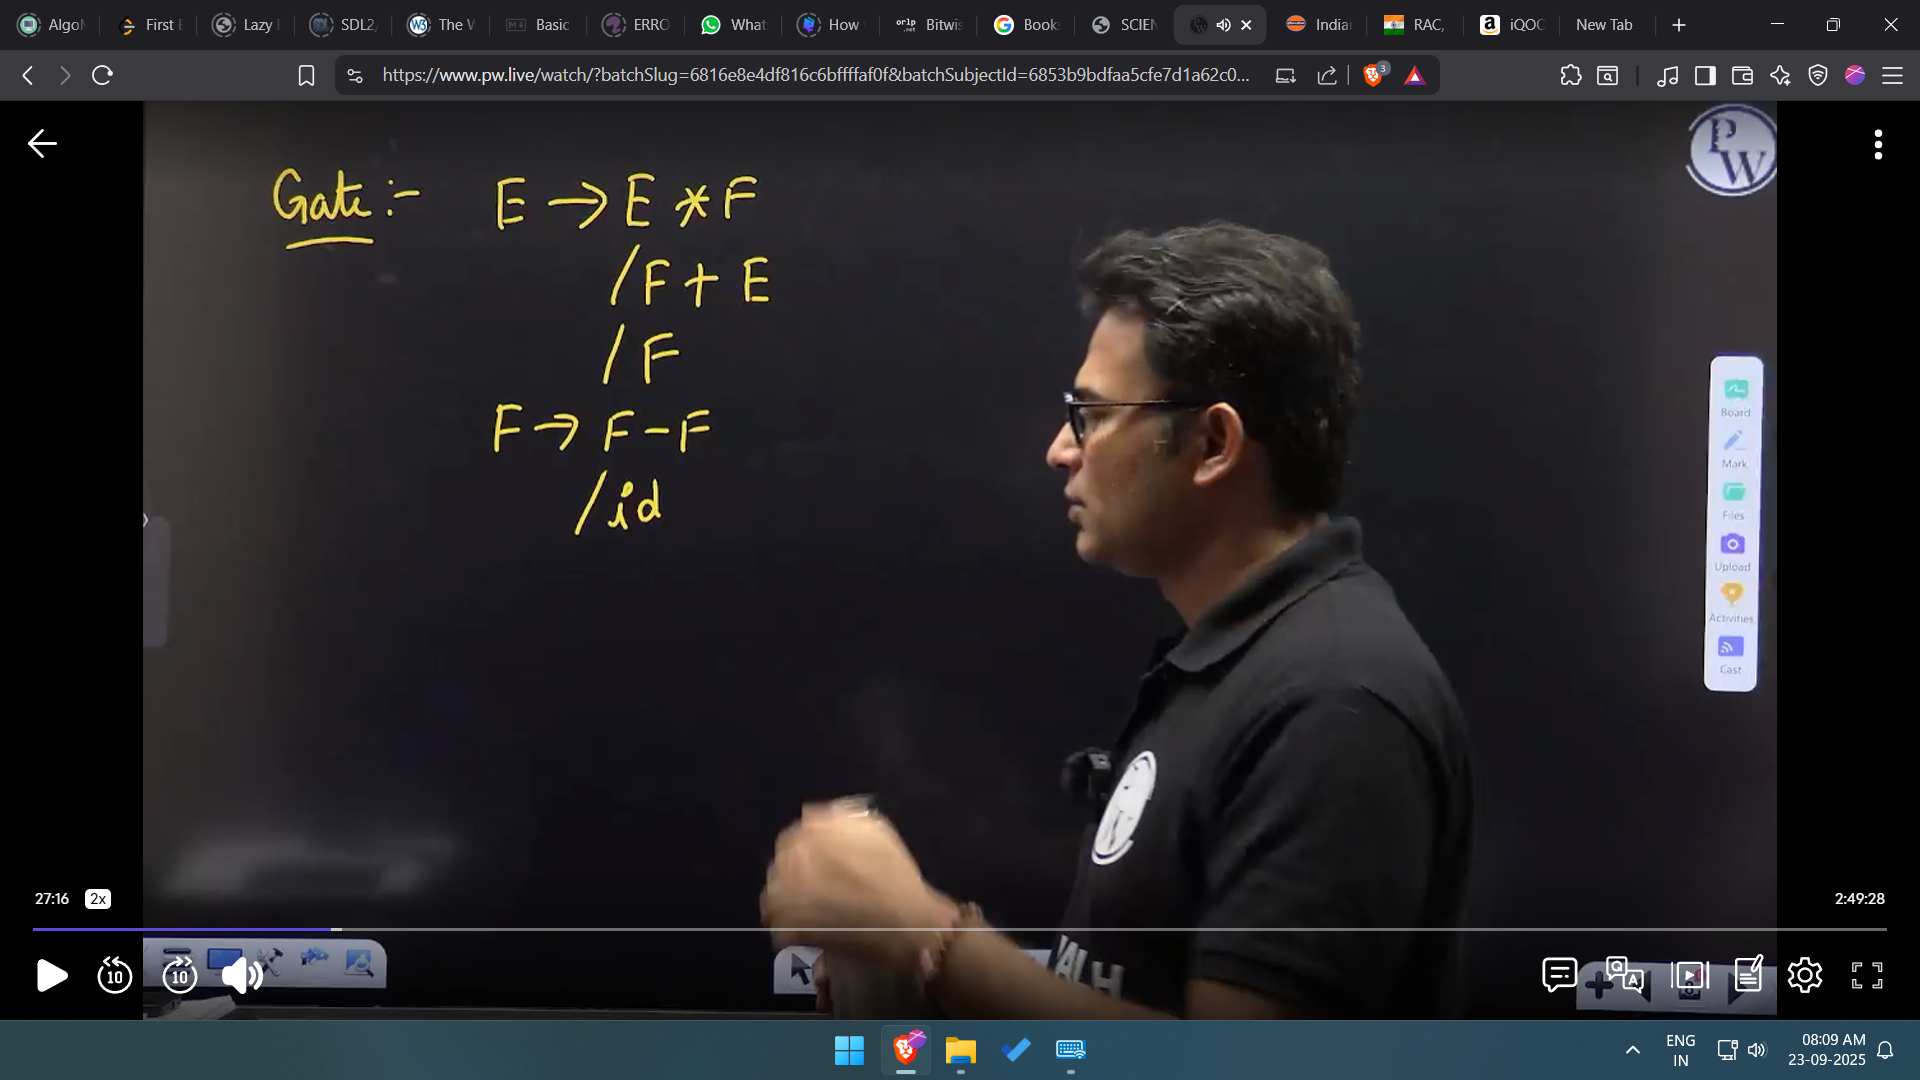 Algo
First E
Lazy
SDL2,
The W
Basic
ERRO
What
How
Bitwis
Book
SCIEN
India
RAC,
iQOO
New Tab
https://www.pw.live/watch/?batchSlug=6816e8e4df816c6bffffaf0f&batchSubjectId=6853b9bdfaa5cfe7d1a62c0...
3
PW
Gate :- E → E * F
/ F + E
/ F
F → F - F
/ id
Board
Mark
Files
Upload
Activities
Cast
27:16 2x
2:49:28
10 10
ALH
ENG
IN
08:09 AM
23-09-2025